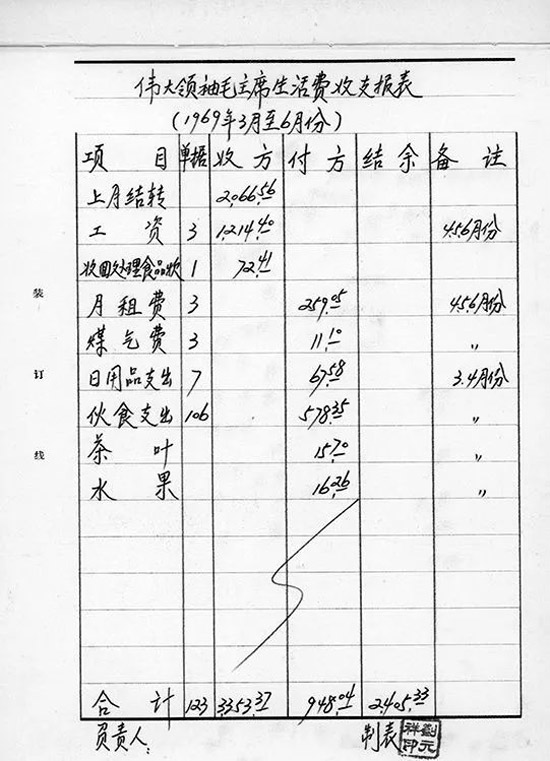 伟大领袖毛主席生活费收支报表
(1969年3月至6月份)
项 目 单据 收方 付方 结余 备注
上月结转 2,066.56
工 资 3 1,214.40 4.5.6月份
收回处理食品款 1 72.41
月租费 3 259.05 4.5.6月份
煤气费 3 11.10 〃
日用品支出 7 67.58 3.4月份
伙食支出 106 578.35 〃
茶 叶 15.70 〃
水 果 16.26 〃
合 计 123 3,353.37 948.04 2,405.33
负责人: 制表 劉元祥印
装
订
线